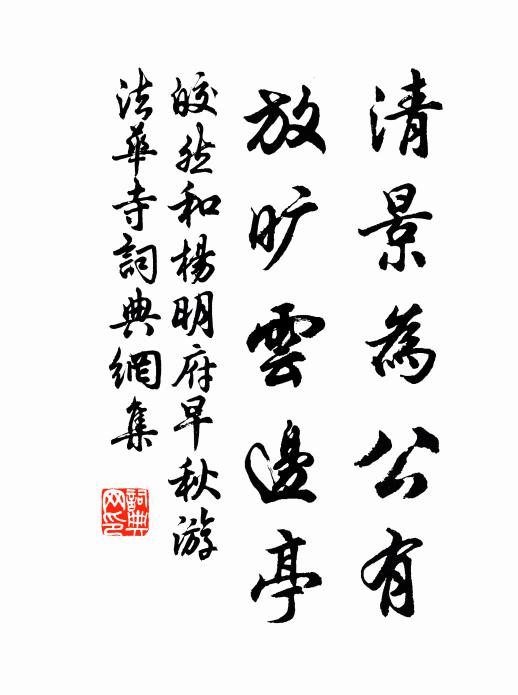 清景為公有
放旷雲邊亭
皎然和楊明府早秋游
法華寺詞典網集
詞典
网印